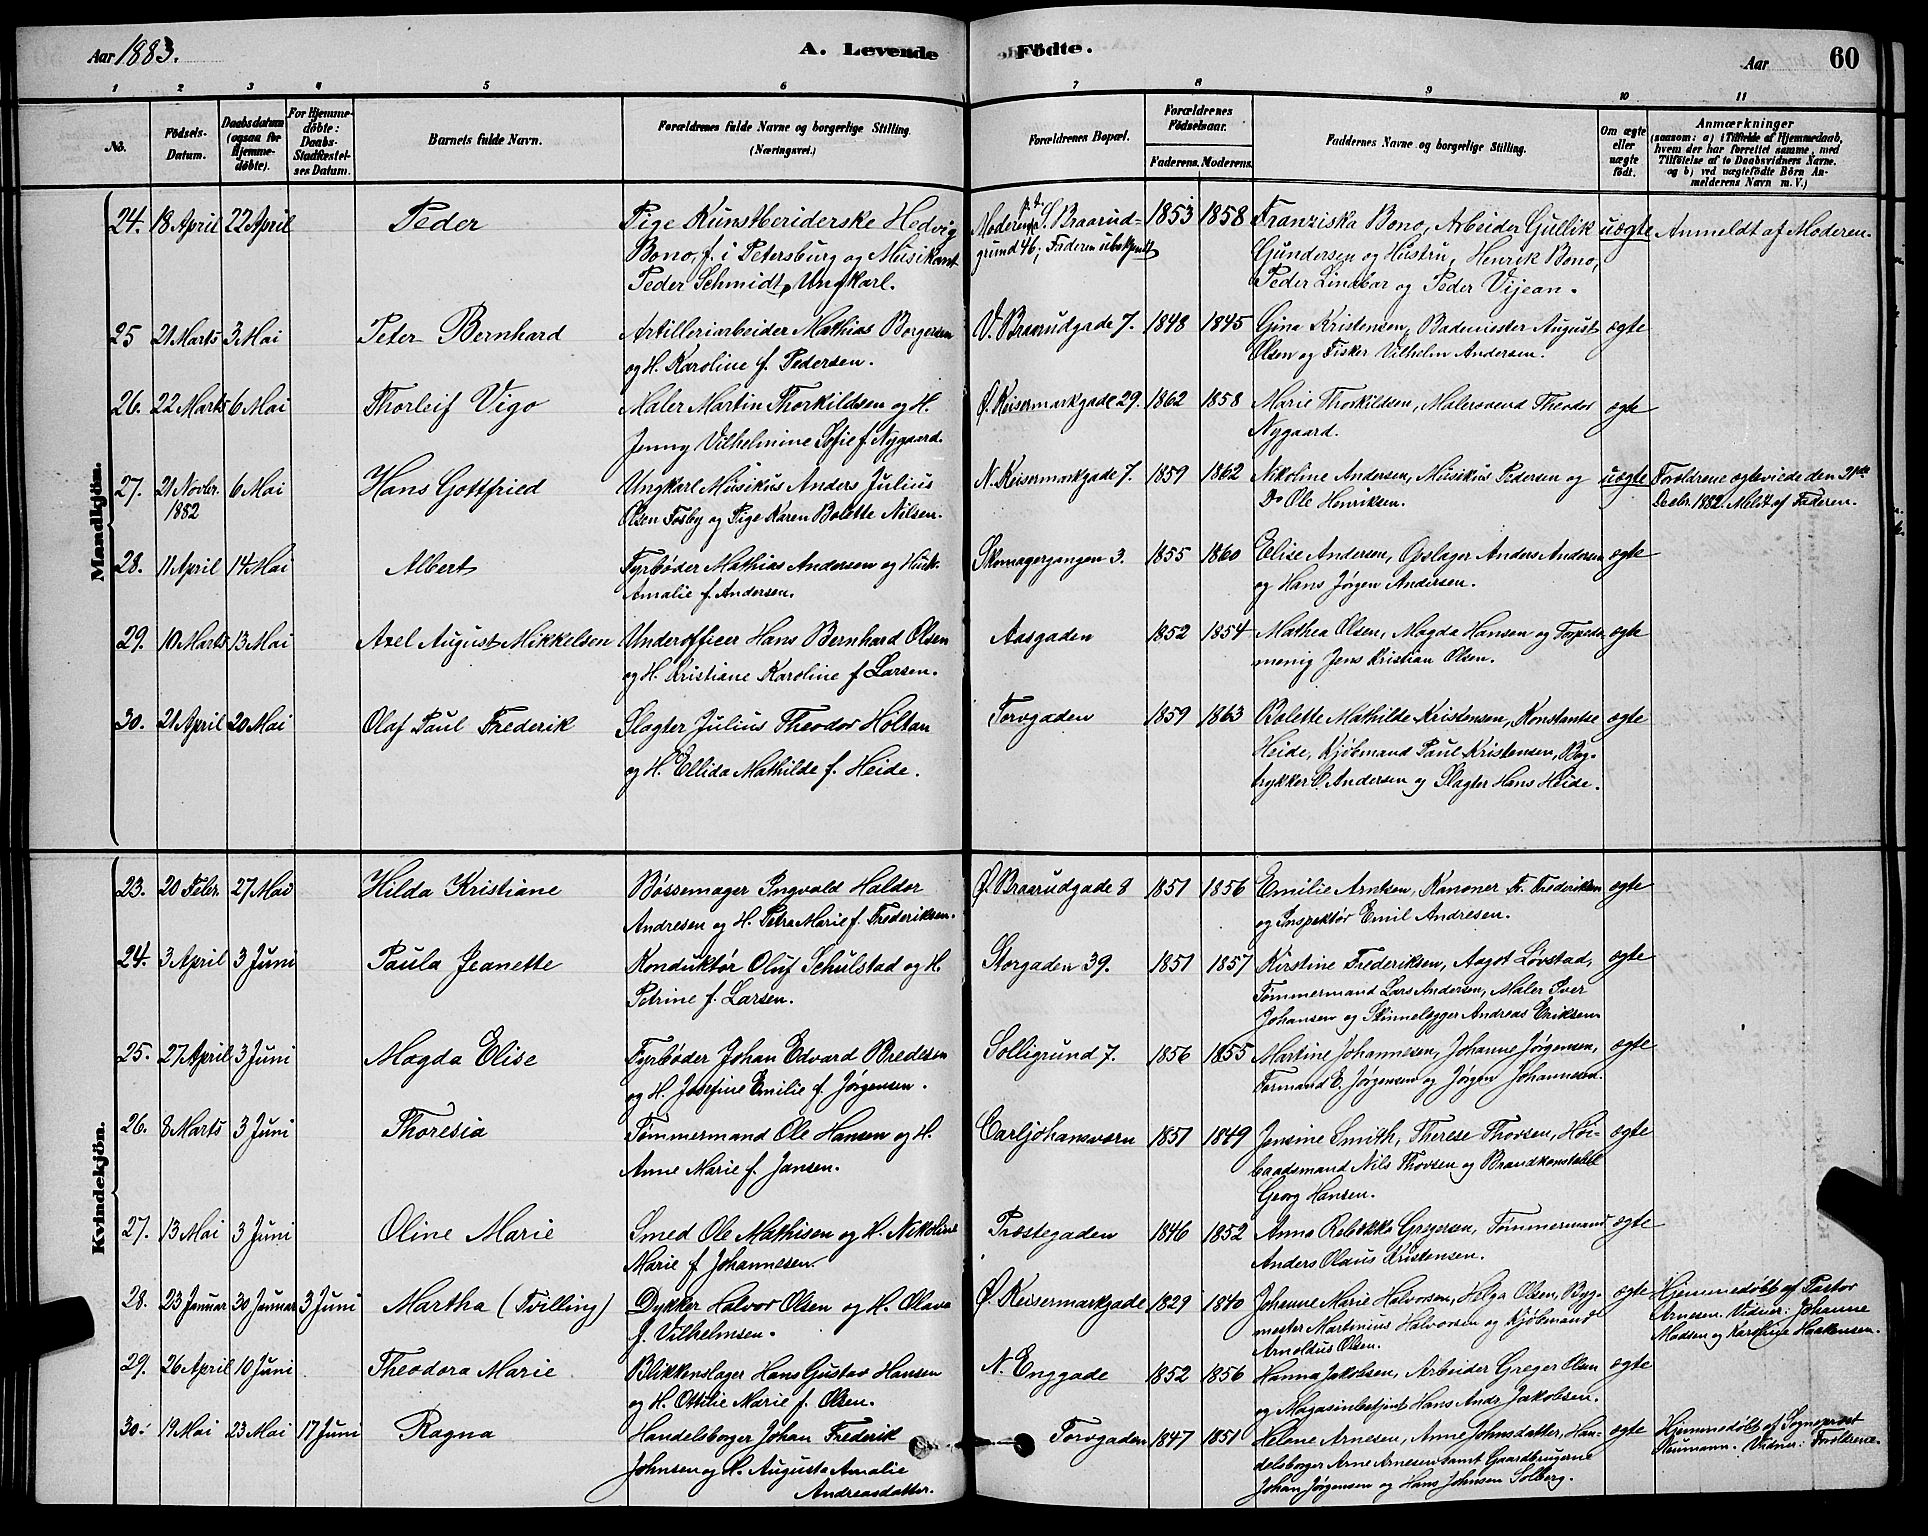 Aar 1883. A. Levende Födte. Aar 60
1 2 3 4 5 6 7 8 9 10 11
No. Födsels-Datum. Daabsdatum (ogsaa for Hjemmedøbte). For Hjemmedøbte: Daabs-Stadfæstelses Datum. Barnets fulde Navn. Forældrenes fulde Navne og borgerlige Stilling. (Næringsvei.) Forældrenes Bopæl. Forældrenes Födselsaar. Faderens. Moderens. Faddernes Navne og borgerlige Stilling. Om ægte eller uægte födt. Anmærkninger (saasom: a) i Tilfælde af Hjemmedaab, hvem der har forrettet samme, med Tilföielse af to Daabsvidners Navne. og b) ved uægtefödte Börn Anmelderens Navn m. V.)
Mandkjön.
24. 18 April 22 April Peder Pige Kunstberiderske Hedvig Moderens p.t. S. Braarud- 1853 1858 Franziska Bono, Arbeider Gullik uægte Anmeldt af Moderen.
Bono, f. i Petersburg og Musikant grund 46, Faderen ubekjendt Gundersen og Hustru, Henrik Bono,
Peder Schmidt, Ungkarl. Peder Lindbar og Peder Vijean.
25 21 Marts 3 Mai Peter Bernhard Artilleriarbeider Mathias Borgersen V. Braarudgade 7. 1848 1845 Gina Kristensen, Bademester August ægte
og H. Karoline f. Pedersen. Olsen og Fisker Vilhelm Andersen.
26. 22 Marts 6 Mai Thorleif Vigo Maler Martin Thorkildsen og H. Ø. Keisermarkgade 29. 1862 1858 Marie Thorkildsen, Malersvend Theodor ægte
Jenny Vilhelmine Sofie f. Nygaard. Nygaard.
27. 21 Novbr. 6 Mai Hans Gottfried Ungkarl Musikus Anders Julius N. Keisermarkgade 7. 1859 1862 Nikoline Andersen, Musikus Pedersen og uægte Forældrene ægteviede den 21de
1882 Olsen Fosby og Pige Karen Bolette Nilsen. Do Ole Henriksen. Decbr. 1882. Meldt af Faderen.
28. 11 April 14 Mai Albert Fyrbøder Mathias Andersen og Hust. Skomagergangen 3. 1855 1860 Elise Andersen, Opslager Anders Andersen ægte
Amalie f. Andersen. og Hans Jørgen Andersen.
29. 10 Marts 13 Mai Axel August Mikkelsen Underofficer Hans Bernhard Olsen Aasgaden 1852 1854 Mathea Olsen, Magda Hansen og Torpedo- ægte
og H. Kristiane Karoline f. Larsen. menig Jens Kristian Olsen.
30. 21 April 20 Mai Olaf Paul Frederik Slagter Julius Theodor Holtan Torvgaden 1859 1863 Bolette Mathilde Kristensen, Konstantse ægte
og H. Ellida Mathilde f. Heide. Heide, Kjøbmand Paul Kristensen, Bog-
trykker O. Andersen og Slagter Hans Heide.
Kvindekjön.
23. 20 Febr. 27 Mai Hilda Kristiane Bøssemager Ingvald Haldor Ø. Braarudgade 8 1851 1856 Emilie Arntsen, Kanoner Fr. Frederiksen ægte
Andresen og H. Petra Marie f. Frederiksen. og Inspektør Emil Andresen.
24. 3 April 3 Juni Paula Jeanette Konduktør Oluf Schulstad og H. Storgaden 39. 1851 1857 Kirstine Frederiksen, Aagot Løvstad, ægte
Petrine f. Larsen. Tømmermand Lars Andersen, Maler Iver
Johansen og Skinnelægger Andreas Eriksen
25. 27 April 3 Juni Magda Elise Fyrbøder Johan Edvard Bredesen Solligrund 7. 1856 1855 Martine Johannesen, Johanne Jørgensen, ægte
og H. Josefine Emilie f. Jørgensen. Formand E. Jørgensen og Jørgen Johannesen.
26. 8 Marts 3 Juni Thoresia Tømmermand Ole Hansen og H. Carljohansværn 1851 1849 Jensine Smith, Therese Thovsen, Høi- ægte
Anne Marie f. Jansen. baadsmand Nils Thovsen og Brandkonstabel
Georg Hansen.
27. 13 Mai 3 Juni Oline Marie Smed Ole Mathisen og H. Nikoline Præstegaden 1846 1852 Anna Rebekka Gregersen, Tømmermand ægte
Marie f. Johannesen. Anders Olaus Kristensen.
28. 23 Januar 30 Januar 3 Juni Martha (Tvilling) Dykker Halvor Olsen og H. Olava Ø. Keisermarkgade 1829 1840 Johanne Marie Halvorsen, Helga Olsen, Byg- ægte Hjemmedøbt af Pastor
f. Vilhelmsen. mester Martinius Halvorsen og Kjøbmand Arnesen. Vidner: Johanne
Arnoldus Olsen. Madsen og Karoline Haakensen.
29. 26 April 10 Juni Theodora Marie Blikkenslager Hans Gustav Hansen N. Enggade 1852 1856 Hanna Jakobsen, Arbeider Greger Olsen ægte
og H. Ottilie Marie f. Olsen. og Magasinbetjent Hans Andr. Jakobsen.
30. 19 Mai 23 Mai 17 Juni Ragna Handelsborger Johan Frederik Torvgaden 1847 1851 Helene Arnesen, Anne Johnsdatter, Han- ægte Hjemmedøbt af Sogneprost
Johnsen og H. Augusta Amalie delsborger Arne Arnesen samt Gaardbrugerne Neumann. Vidner: Forældrene.
Andreasdatter. Johan Jørgensen og Hans Johnsen Solberg.